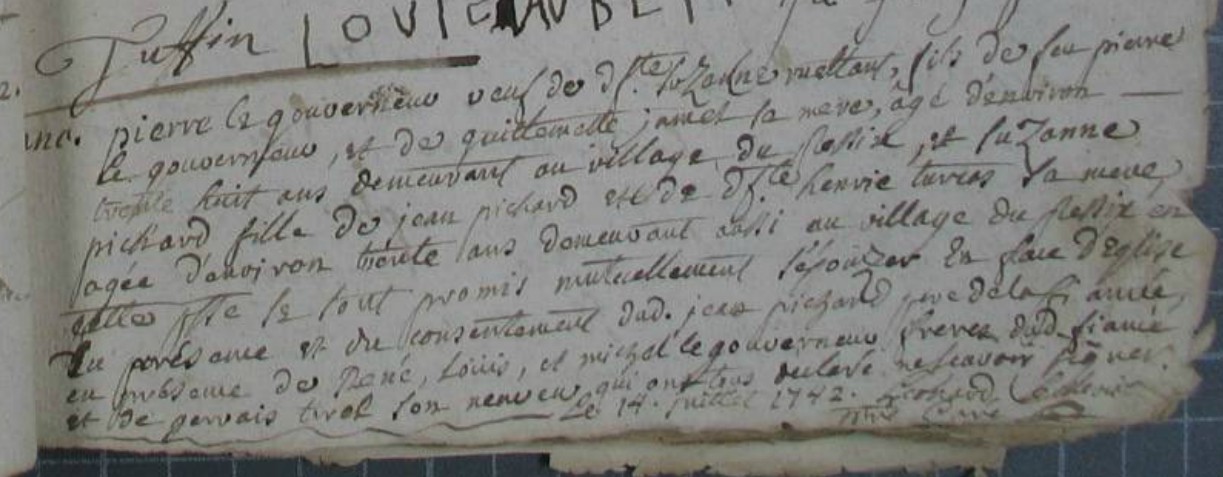 Tuffin LOUIE AUBER
pierre le gouverneur veuf de df.te suzanne mettais, fils de feu pierre
le gouverneur, et de guillemette jamet sa mere, âgé d'environ
trente huit ans demeurant au village du plessix, et suzanne
pichard fille de jean pichard et de df.te henrie sa mere,
agée d'environ trente ans demeurant aussi au village du plessix en
cette psse se sont promis mutuellement s'épouzer En face d'Eglise
En présance et du consentement dud. jean pichard pere de la fiancée,
en présence de René, Louis, et michel le gouverneur freres dud. fiancé
et de gervais tirol son neveu qui ont tous declaré ne scavoir signer.
Le 14. juillet 1742.